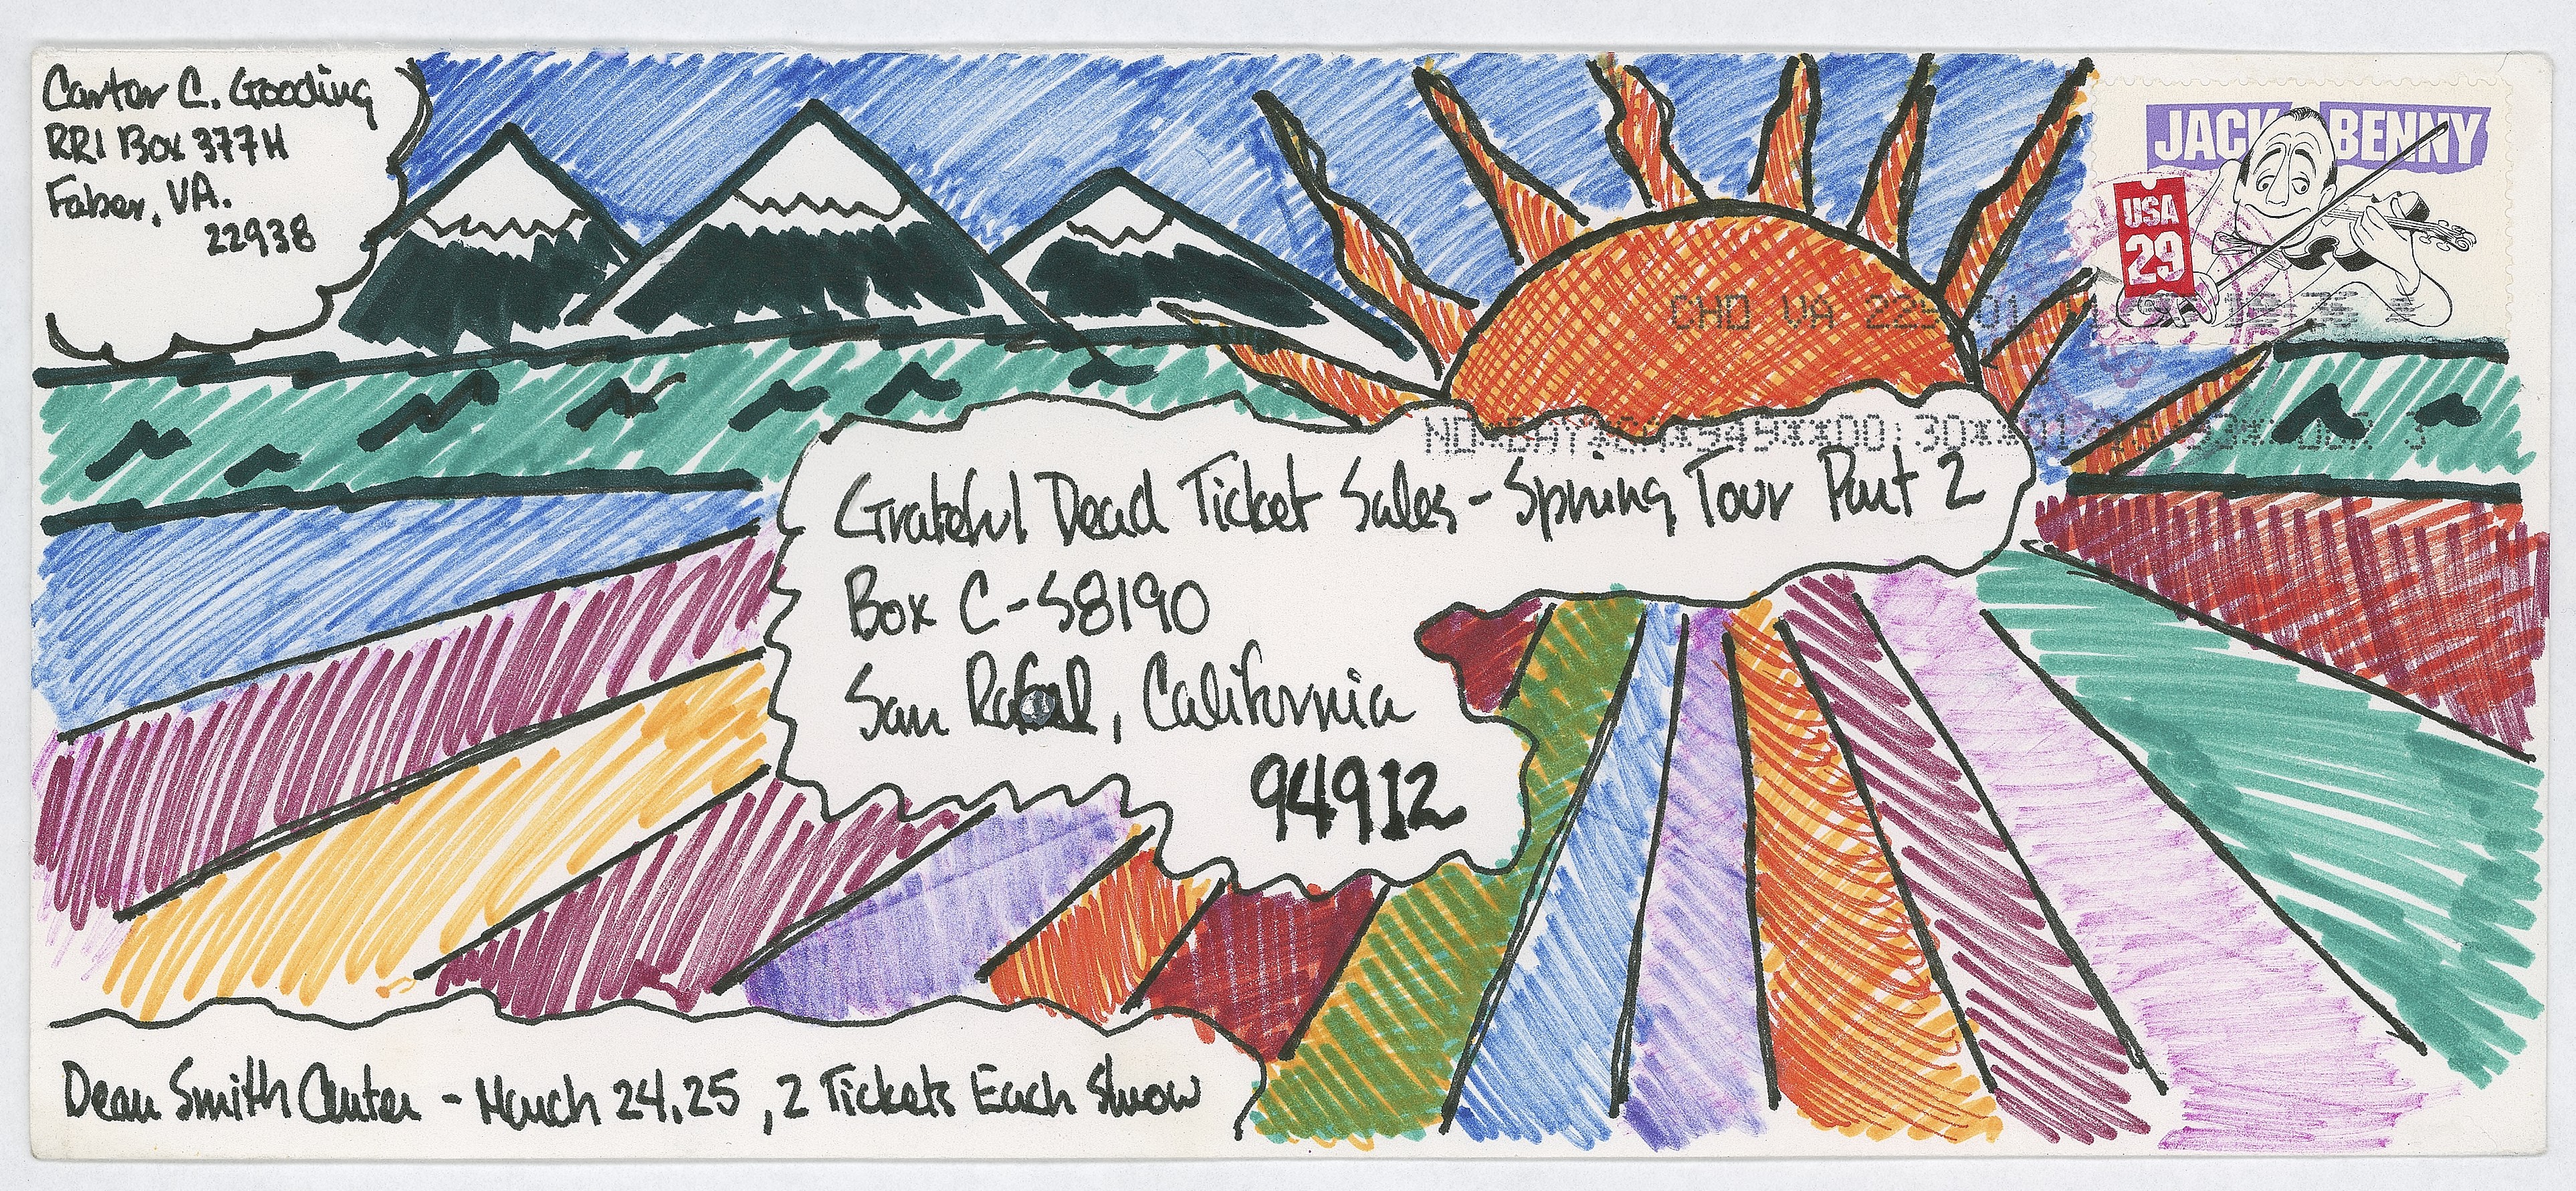 Carter C. Gooding
RR1 Box 377H
Faber, VA.
22938
JACK BENNY
USA
29
CHO VA
Grateful Dead Ticket Sales - Spring Tour Part 2
Box C-S8190
San Rafael, California
94912
Dean Smith Center - March 24.25, 2 Tickets Each Show